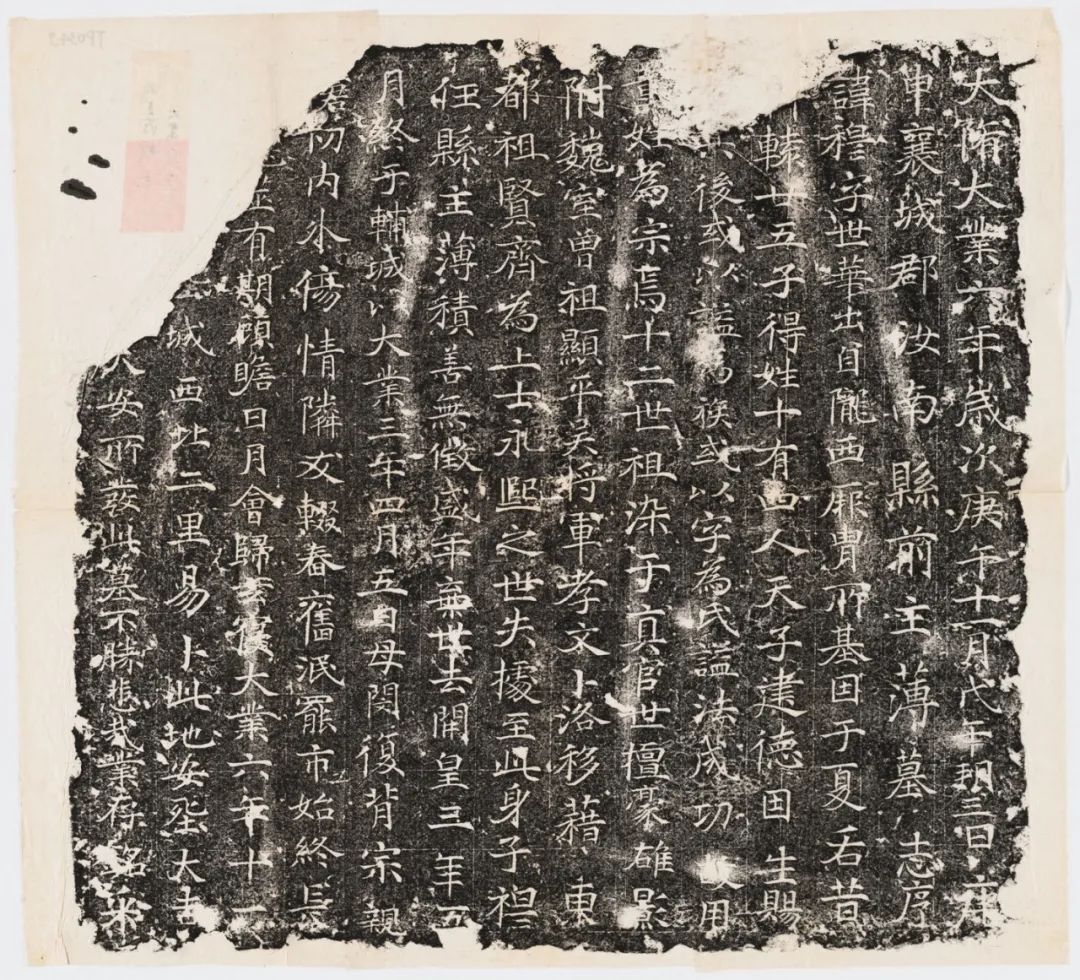 大隋大業六年歲次庚午十一月戊午朔三日庚
申襄城郡汝南縣前主薄墓志序
諱穆字世華出自隴西厥胄所基因于夏后昔
轅廿五子得姓十有四人天子建德因生賜
後或以謚為族或以字為氏謚法成功用
姓為宗焉十二世祖染于真官世擅豪雄影
附魏室曾祖顯平吴将軍孝文卜洛移藉東
都祖賢齊為上士永熙之世失據至此身子褶
任縣主薄積善無徵盛年棄世去開皇三年五
月終于輔城以大業三年四月五日母閔復背宗親
君初内外傷情隣友輟春舊泯罷市始終長
有期顧瞻日月會歸玄寢大業六年十一
城西北二里易卜此地安厝大吉
大安所葬此墓不勝悲哉業存銘